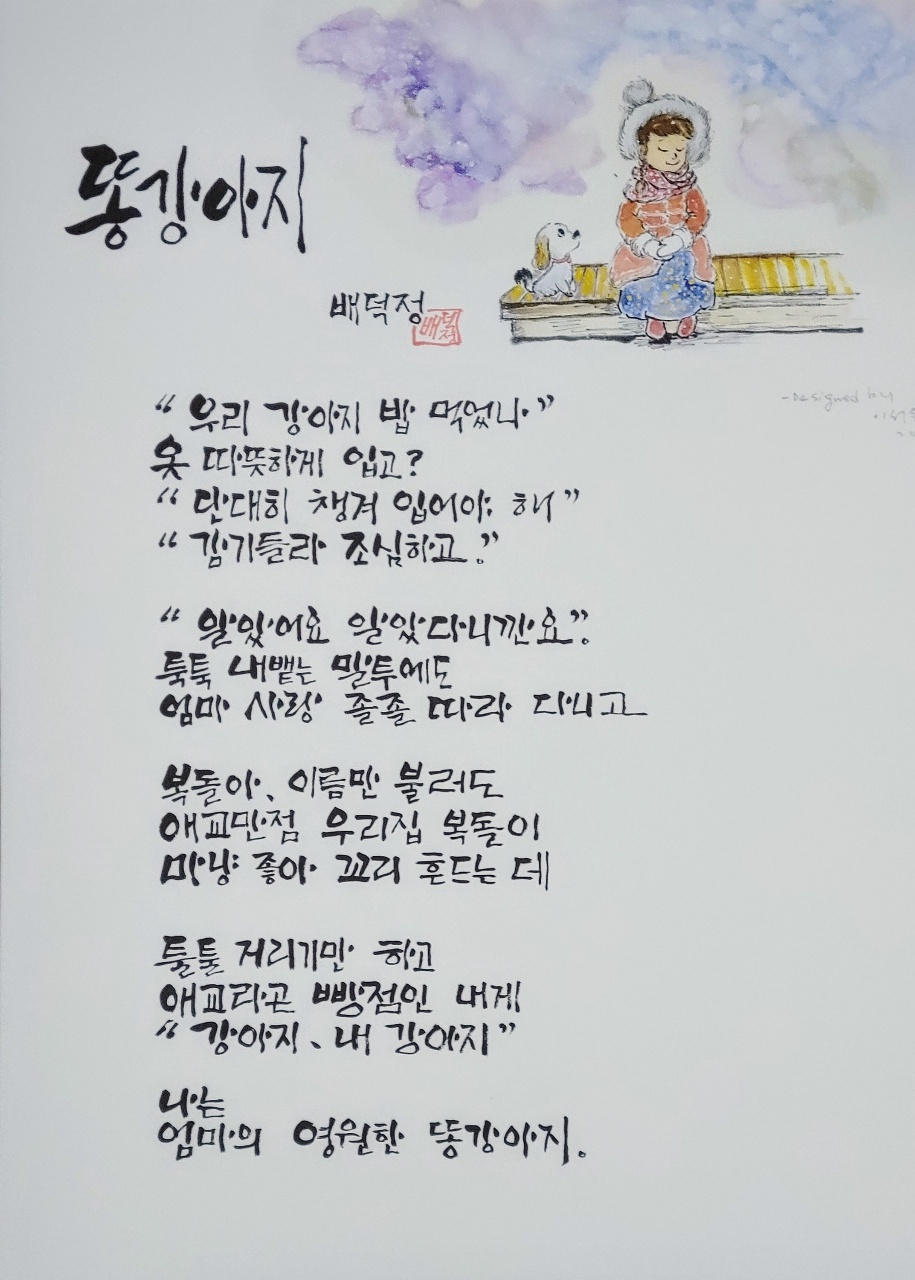 똥강아지
배덕정
배덕정
“우리 강아지 밥 먹었나.”
옷 따뜻하게 입고?
“단대히 챙겨 입어야 해”
“감기들라 조심하고.”
“알았어요 알았다니깐요.”
툭툭 내뱉는 말투에도
엄마 사랑 졸졸 따라 다니고
복돌아, 이름만 불러도
애교만점 우리집 복돌이
마냥 좋아 꼬리 흔드는 데
툴툴 거리기만 하고
애교라곤 빵점인 내게
“강아지、내 강아지”
나는
엄마의 영원한 똥강아지.
-Designed by